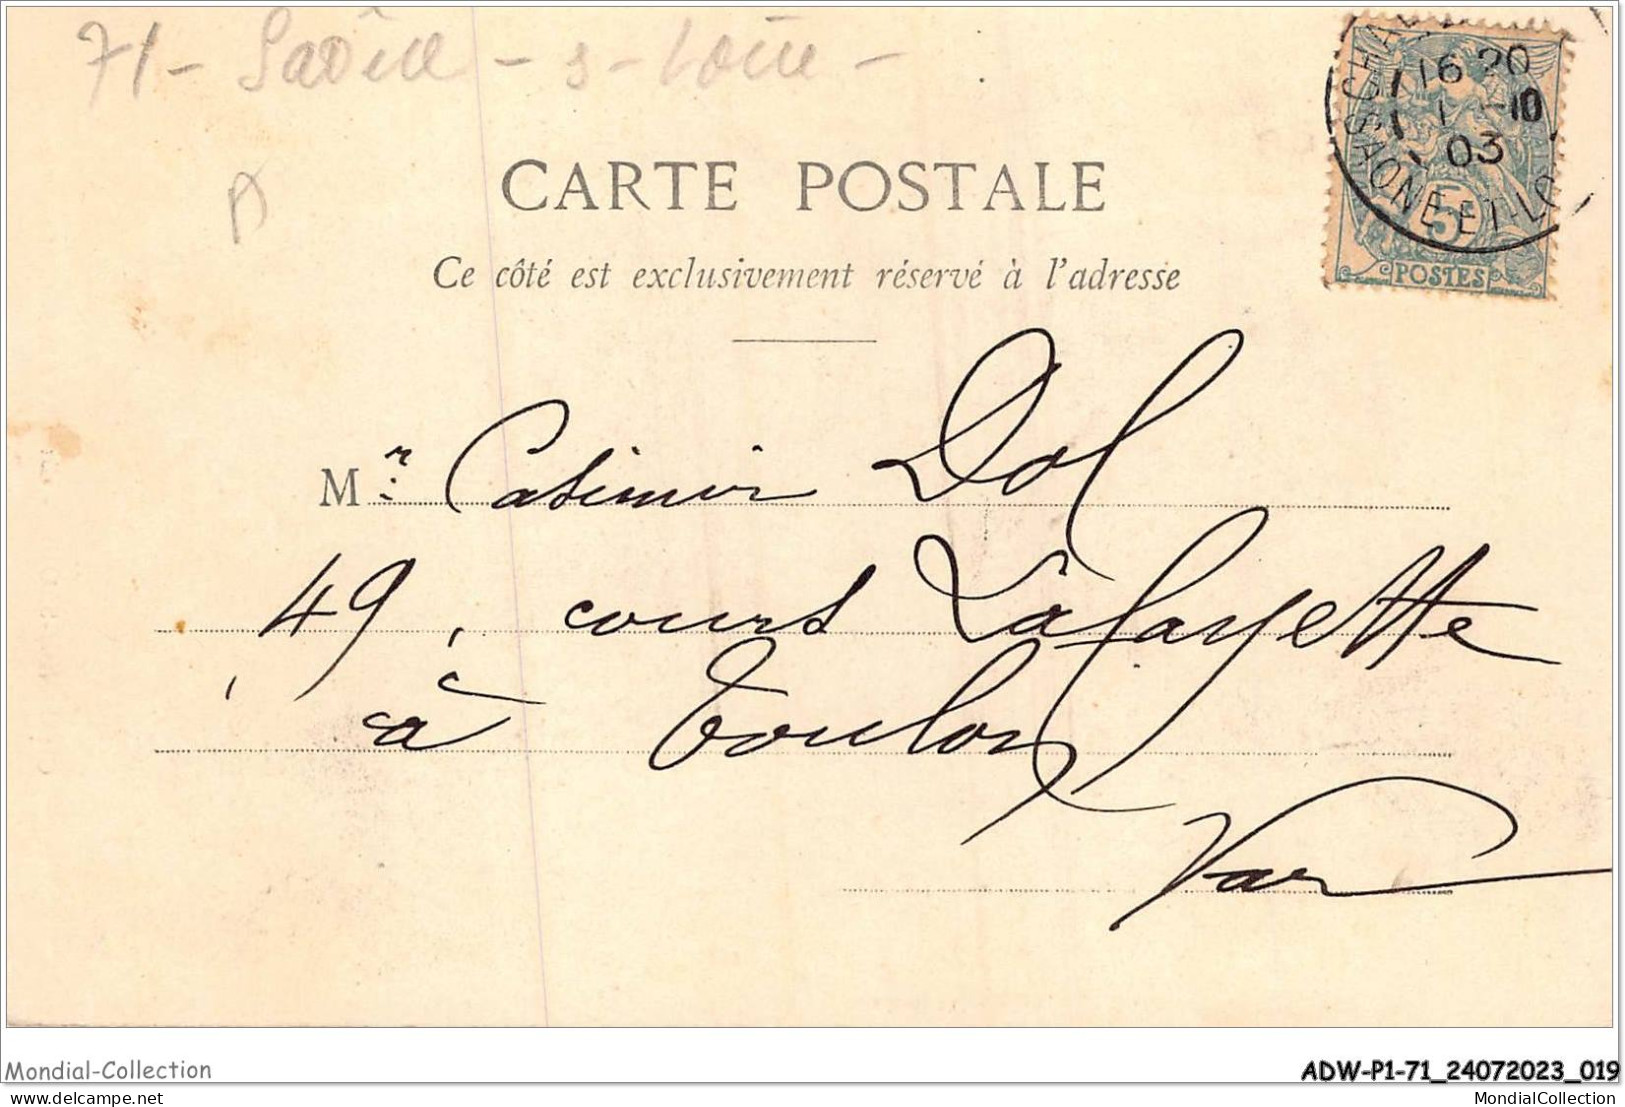 71 - Saône - s - Loire -
16 20
1 -10
03
SAONE-ET-LO
5c
POSTES
CARTE POSTALE
Ce côté est exclusivement réservé à l'adresse
Mr Casimir Dol
49, cours Lafayette
à Toulon
Var
Mondial-Collection
ADW-P1-71_24072023_019
delcampe.net
MondialCollection